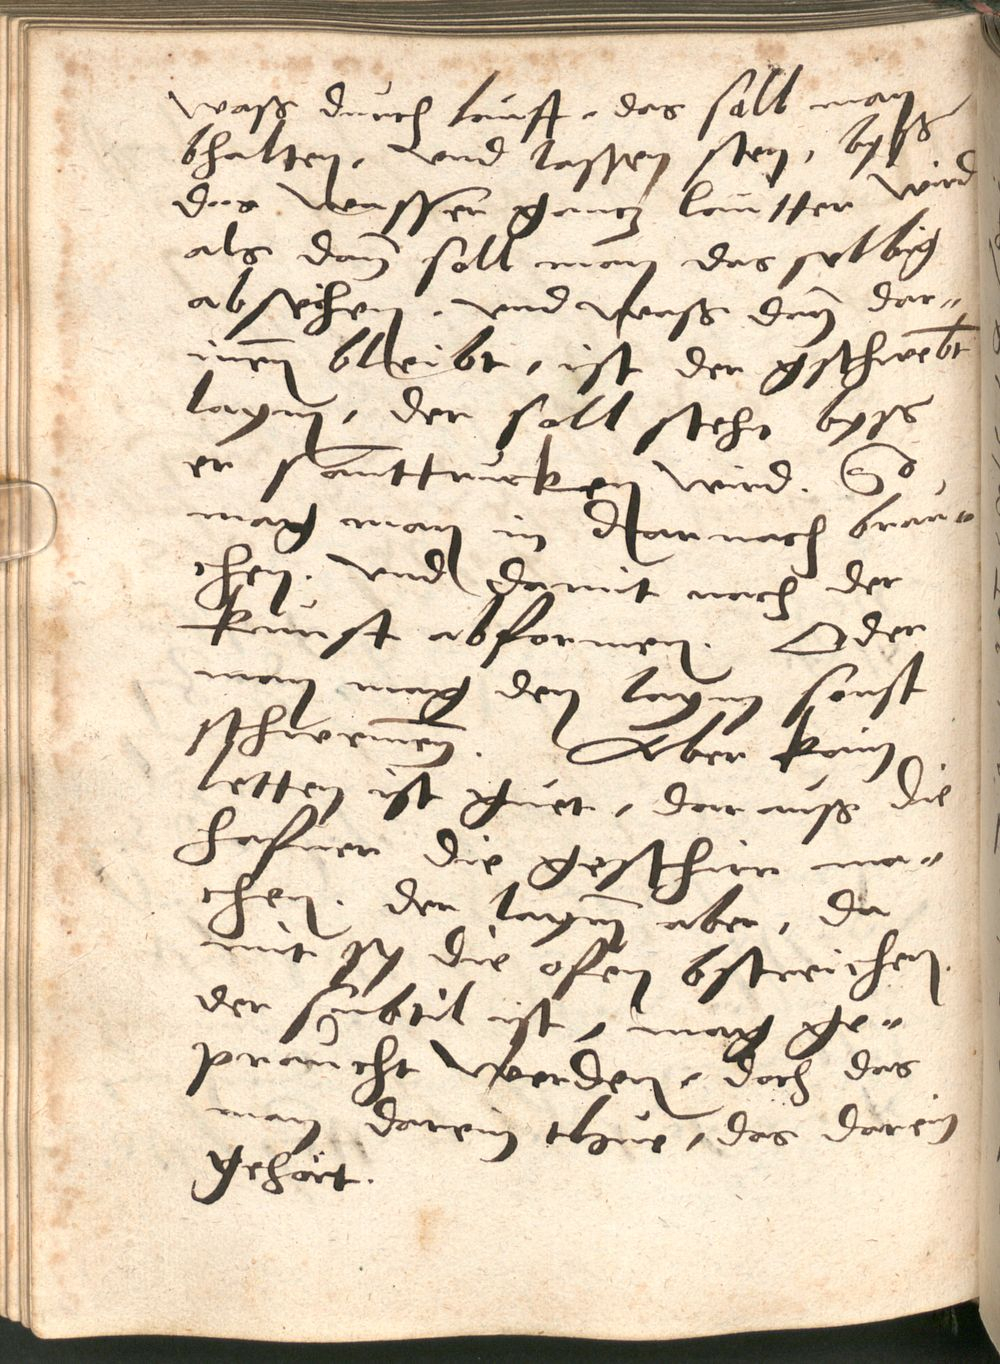 wasß durch lauft, das soll man
bhalten, vnd lassen sten, bysß
das Wasser gantz lautter wird
als dan̄ soll man das selbig
abseihen, vnd wasß dan̄ dar-
inen̄ bleibt, ist der gschwebt
laym, der soll stehn bysß
er samttrucken wird. So
mag man in darnach brau-
chen. vnd damit nach der
kunst abformen. Oder
man mag den laym sonst
schwemen̄. Aber kain
letten ist guet, darausß die
hafner die geschirr ma-
chen. der laym̄ aber, da
mit sy die ofen bstreichen.
der subtil ist, mag ge-
praucht werden, doch das
man darein thue, das darein
gehört.